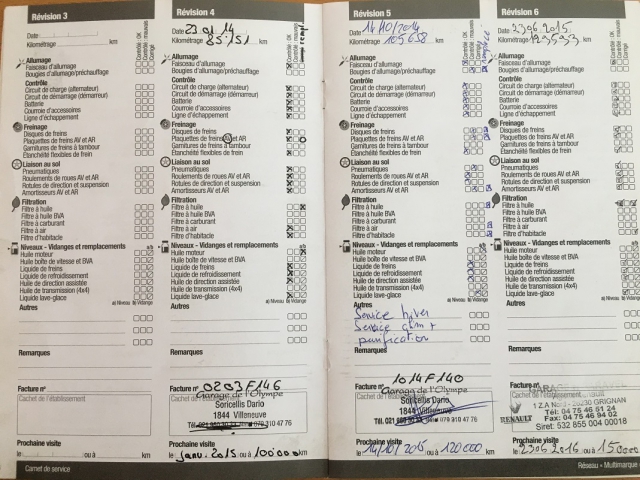 Révision 3
Date
Kilométrage km
Contrôle : OK
Contrôle : mauvais
Corrigé
Allumage
Faisceau d'allumage
Bougies d'allumage/préchauffage
Contrôle
Circuit de charge (alternateur)
Circuit de démarrage (démarreur)
Batterie
Courroie d'accessoires
Ligne d'échappement
Freinage
Disques de freins
Plaquettes de freins AV et AR
Garnitures de freins à tambour
Étanchéité flexibles de frein
Liaison au sol
Pneumatiques
Roulements de roues AV et AR
Rotules de direction et suspension
Amortisseurs AV et AR
Filtration
Filtre à huile
Filtre à huile BVA
Filtre à carburant
Filtre à air
Filtre d'habitacle
Niveaux - Vidanges et remplacements a/b
Huile moteur
Huile boîte de vitesse et BVA
Liquide de freins
Liquide de refroidissement
Huile de direction assistée
Huile de transmission (4x4)
Liquide lave-glace
a) Niveau b) Vidange
Autres
Remarques
Facture n°
Cachet de l'établissement
Prochaine visite
le ou à km
Carnet de service
Révision 4
Date 23.01.14
Kilométrage 85'151 km
Contrôle : OK
Contrôle : mauvais
Allumage
Faisceau d'allumage
Bougies d'allumage/préchauffage
Contrôle
Circuit de charge (alternateur)
Circuit de démarrage (démarreur)
Batterie
Courroie d'accessoires
Ligne d'échappement
Freinage
Disques de freins
Plaquettes de freins AV et AR
Garnitures de freins à tambour
Étanchéité flexibles de frein
Liaison au sol
Pneumatiques
Roulements de roues AV et AR
Rotules de direction et suspension
Amortisseurs AV et AR
Filtration
Filtre à huile
Filtre à huile BVA
Filtre à carburant
Filtre à air
Filtre d'habitacle
Niveaux - Vidanges et remplacements a/b
Huile moteur
Huile boîte de vitesse et BVA
Liquide de freins
Liquide de refroidissement
Huile de direction assistée
Huile de transmission (4x4)
Liquide lave-glace
a) Niveau b) Vidange
Autres
Remarques
Facture n° 0203F146
Garage de l'Olympe
Cachet de l'établissement
Sorcellis Dario
1844 Villeneuve
Prochaine visite
le janv. 2015 ou à 100'000 km
Révision 5
Date 14/10/2014
Kilométrage 105'638 km
Contrôle : OK
Contrôle : mauvais
Allumage
Faisceau d'allumage
Bougies d'allumage/préchauffage
Contrôle
Circuit de charge (alternateur)
Circuit de démarrage (démarreur)
Batterie
Courroie d'accessoires
Ligne d'échappement
Freinage
Disques de freins
Plaquettes de freins AV et AR
Garnitures de freins à tambour
Étanchéité flexibles de frein
Liaison au sol
Pneumatiques
Roulements de roues AV et AR
Rotules de direction et suspension
Amortisseurs AV et AR
Filtration
Filtre à huile
Filtre à huile BVA
Filtre à carburant
Filtre à air
Filtre d'habitacle
Niveaux - Vidanges et remplacements a/b
Huile moteur
Huile boîte de vitesse et BVA
Liquide de freins
Liquide de refroidissement
Huile de direction assistée
Huile de transmission (4x4)
Liquide lave-glace
a) Niveau b) Vidange
Autres
Service hiver
Service clim +
purification
Remarques
Facture n° 1014F140
Garage de l'Olympe
Cachet de l'établissement
Sorcellis Dario
1844 Villeneuve
Prochaine visite
le 14/10/2015 ou à 120000 km
Révision 6
Date 23 06.2015
Kilométrage km
Contrôle : OK
Contrôle : mauvais
Corrigé
Allumage
Faisceau d'allumage
Bougies d'allumage/préchauffage
Contrôle
Circuit de charge (alternateur)
Circuit de démarrage (démarreur)
Batterie
Courroie d'accessoires
Ligne d'échappement
Freinage
Disques de freins
Plaquettes de freins AV et AR
Garnitures de freins à tambour
Étanchéité flexibles de frein
Liaison au sol
Pneumatiques
Roulements de roues AV et AR
Rotules de direction et suspension
Amortisseurs AV et AR
Filtration
Filtre à huile
Filtre à huile BVA
Filtre à carburant
Filtre à air
Filtre d'habitacle
Niveaux - Vidanges et remplacements a/b
Huile moteur
Huile boîte de vitesse et BVA
Liquide de freins
Liquide de refroidissement
Huile de direction assistée
Huile de transmission (4x4)
Liquide lave-glace
a) Niveau b) Vidange
Autres
Remarques
Facture n°
GARAGE
Cachet de l'établissement
GRIGNAN
RENAULT
Tél: 04 75 46 51 24
Fax: 04 75 46 94 02
Siret: 532 855 004 00018
Prochaine visite
le 23 06 2016 ou à
Réseau • Multimarque